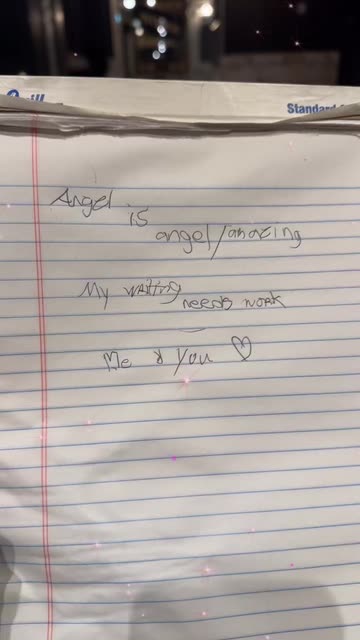 Quill
Standard
Angel
is
angel/amazing
My writing
needs work
Me & You ♡